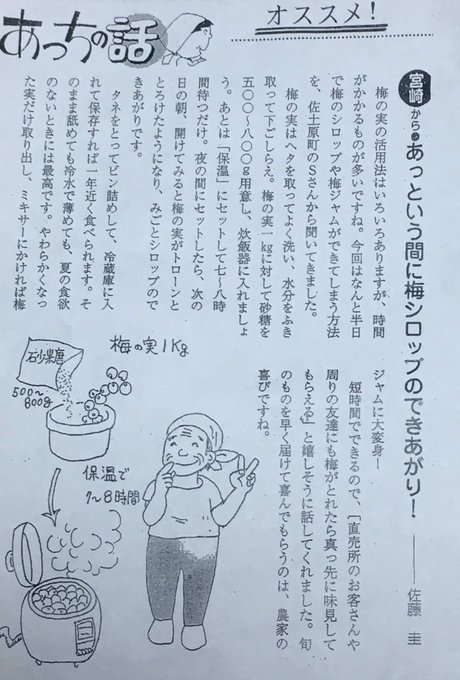 オススメ!
あっちの話
宮崎から
あっという間に梅シロップのできあがり! ―― 佐藤 圭
梅の実の活用法はいろいろありますが、時間
がかかるものが多いですね。今回はなんと半日
で梅のシロップや梅ジャムができてしまう方法
を、佐土原町のSさんから聞いてきました。
梅の実はヘタを取ってよく洗い、水分をふき
取って下ごしらえ。梅の実一kgに対して砂糖を
五〇〇〜八〇〇g用意し、炊飯器に入れましょ
う。あとは「保温」にセットして七〜八時
間待つだけ。夜の間にセットしたら、次の
日の朝、開けてみると梅の実がトローンと
とろけたようになり、みごとシロップので
きあがりです。
タネをとってビン詰めして、冷蔵庫に入
れて保存すれば一年近く食べられます。そ
のまま舐めても冷水で薄めても、夏の食欲
のないときには最高です。やわらかくなっ
た実だけ取り出し、ミキサーにかければ梅
ジャムに大変身!
短時間でできるので、「直売所のお客さんや
周りの友達にも梅がとれたら真っ先に味見して
もらえる」と嬉しそうに話してくれました。旬
のものを早く届けて喜んでもらうのは、農家の
喜びですね。
梅の実1Kg
砂糖
500〜
800g
保温で
7〜8時間